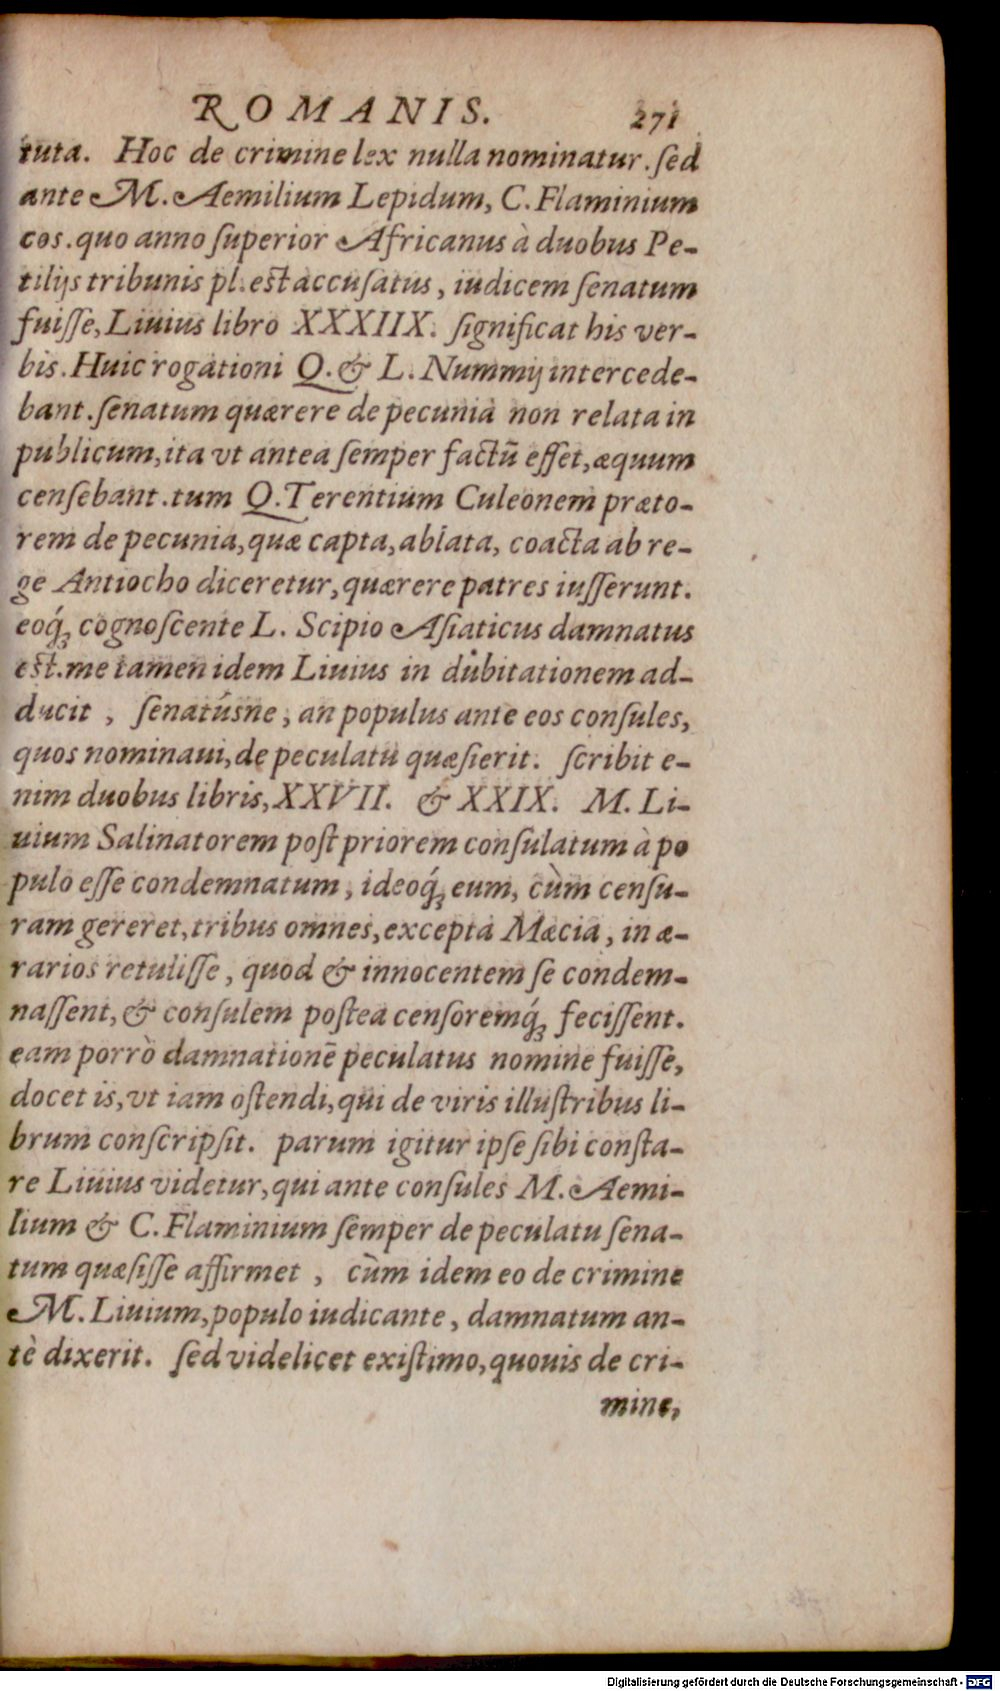 ROMANIS. 271
tuta. Hoc de crimine lex nulla nominatur. ſed
ante M. Aemilium Lepidum, C. Flaminium
cos. quo anno ſuperior Africanus à duobus Pe-
tilijs tribunis pl. eſt accuſatus, iudicem ſenatum
fuiſſe, Liuius libro XXXIIX. ſignificat his ver-
bis. Huic rogationi Q. & L. Nummij intercede-
bant. ſenatum quærere de pecunia non relata in
publicum, ita vt antea ſemper factū eſſet, æquum
cenſebant. tum Q. Terentium Culeonem præto-
rem de pecunia, quæ capta, ablata, coacta ab re-
ge Antiocho diceretur, quærere patres iuſſerunt.
eoq́; cognoſcente L. Scipio Aſiaticus damnatus
eſt. me tamen idem Liuius in dubitationem ad-
ducit, ſenatúsne, an populus ante eos conſules,
quos nominaui, de peculatu quæſierit. ſcribit e-
nim duobus libris, XXVII. & XXIX. M. Li-
uium Salinatorem poſt priorem conſulatum à po
pulo eſſe condemnatum, ideoq́; eum, cùm cenſu-
ram gereret, tribus omnes, excepta Mæcia, in æ-
rarios retuliſſe, quod & innocentem ſe condem-
naſſent, & conſulem poſtea cenſoremq́; feciſſent.
eam porrò damnationē peculatus nomine fuiſſe,
docet is, vt iam oſtendi, qui de viris illuſtribus li-
brum conſcripſit. parum igitur ipſe ſibi conſta-
re Liuius videtur, qui ante conſules M. Aemi-
lium & C. Flaminium ſemper de peculatu ſena-
tum quæſiſſe affirmet, cùm idem eo de crimine
M. Liuium, populo iudicante, damnatum an-
tè dixerit. ſed videlicet exiſtimo, quouis de cri-
mine,
Digitalisierung gefördert durch die Deutsche Forschungsgemeinschaft - DFG